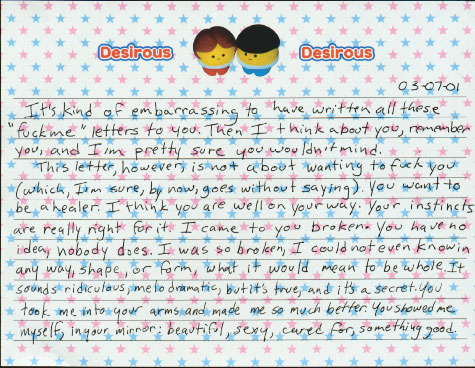 Desirous Desirous
03-07-01
It's kind of embarrassing to have written all these
"fuck me" letters to you. Then I think about you, remember
you, and I'm pretty sure you wouldn't mind.
This letter, however, is not about wanting to fuck you
(which, I'm sure, by now, goes without saying). You want to
be a healer. I think you are well on your way. Your instincts
are really right for it. I came to you broken. You have no
idea, nobody does. I was so broken, I could not even know in
any way, shape, or form, what it would mean to be whole. It
sounds ridiculous, melodramatic, but it's true, and it's a secret. You
took me into your arms and made me so much better. You showed me
myself, in your mirror: beautiful, sexy, cared for, something good.